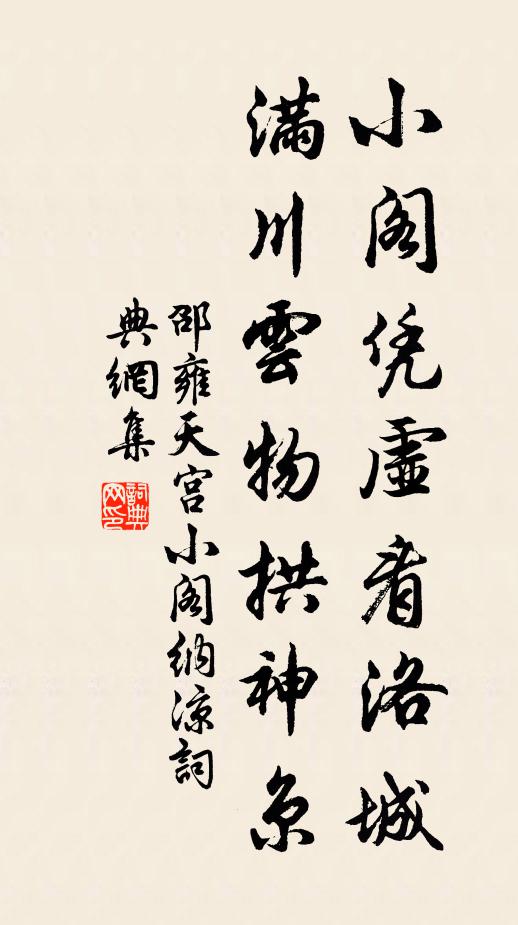 小阁凭虚看洛城
满川雲物拱神京
邵雍天宫小阁纳凉詞
典網集
詞典網印